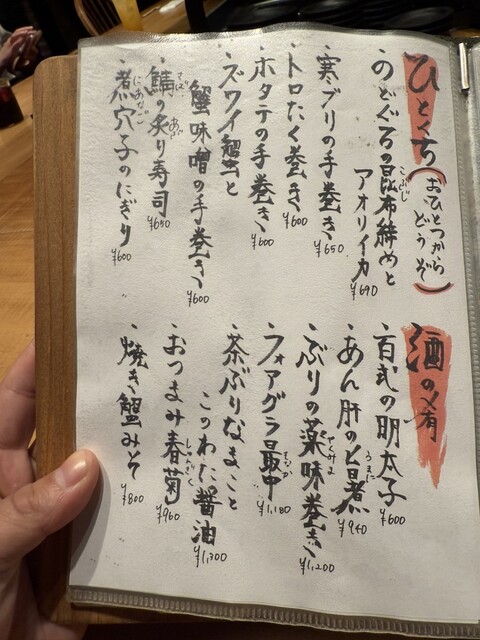 ひとくち(おひとつから
どうぞ)
・のどぐろの昆布締めと
こぶじ
アオリイカ ¥690
・寒ブリの手巻き ¥650
・トロたく巻き ¥600
・ホタテの手巻き ¥600
・ズワイ蟹と
蟹味噌の手巻き ¥600
・鯖の炙り寿司 ¥650
さば あぶ
・煮穴子のにぎり ¥600
にあなご
酒の肴
・百式の明太子 ¥600
・あん肝の旨煮 ¥940
うまに
・ぶりの薬味巻き ¥1,200
やくみ
・フォアグラ最中 ¥1,180
もなか
・茶ぶりなまこと
このわた醤油 ¥1,300
・おつまみ春菊 ¥960
しゅんぎく
・焼き蟹みそ ¥800